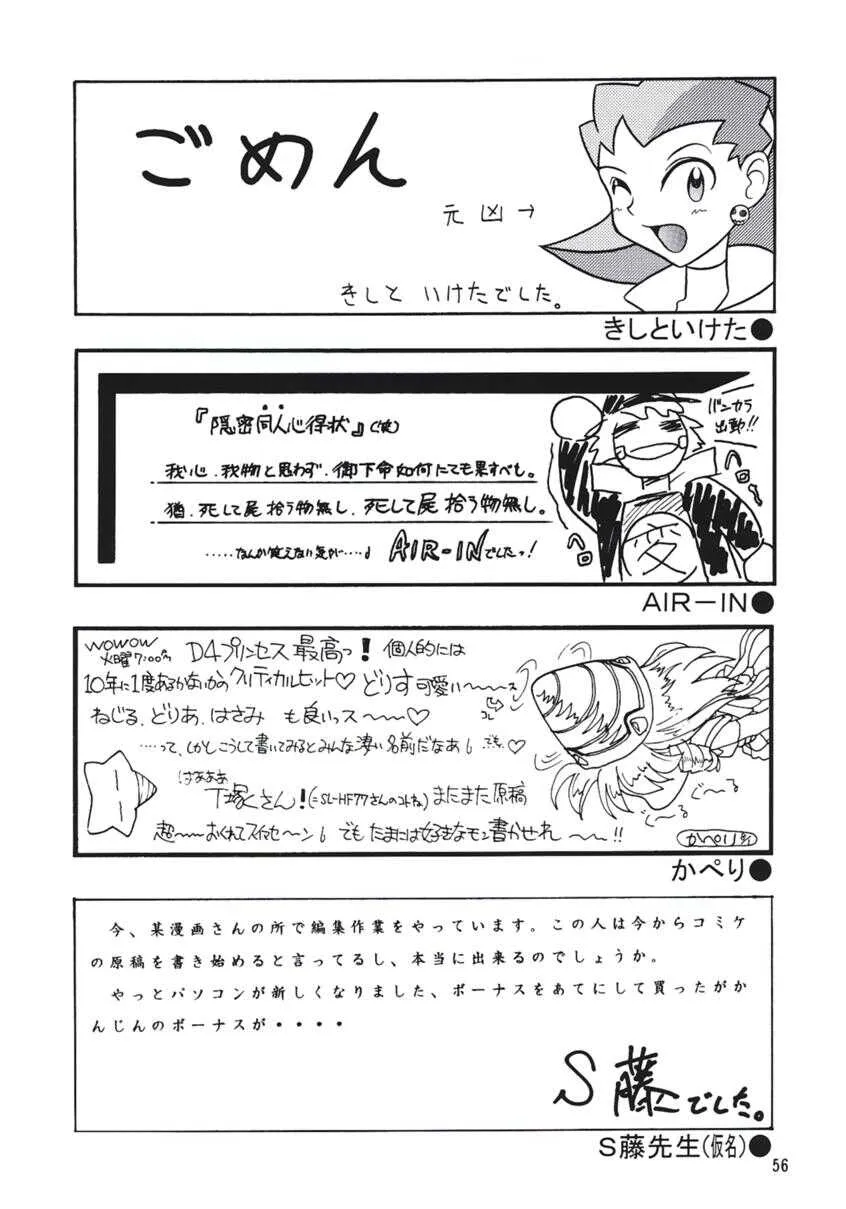 ごめん
元凶→
きしと いけたでした。
きしといけた●
『隠密同人心得状』(改)
バンカラ
出動!!
我心、我物と思わず、御下命如何にても果すべし。
猶、死して屍拾う物無し、死して屍拾う物無し。
ヘロ
ヘロ
変
‥‥‥なんか覚えない気が‥‥♪ AIR-INでしたっ!
AIR-IN●
WOWOW
火曜7:00~
D4プリンセス最高っ! 個人的には
10年に1度あるかないかのクリティカルヒット♡ どりす可愛い〜〜〜ス
コレ
ねじる、どりあ、はさみ も良いっス〜〜♡
‥‥って、しかしこうして書いてみるとみんな凄い名前だなあ でも♡
はぁぁぁ
T塚くさん!(=SL-HF77さんのコトね)またまた原稿
超〜〜おくれてスイマセ〜ン でもたまには好きなモン書かせれ〜〜!!
ぐ〜る
ぐ〜る
かぺり
かぺり●
今、某漫画さんの所で編集作業をやっています。この人は今からコミケ
の原稿を書き始めると言ってるし、本当に出来るのでしょうか。
やっとパソコンが新しくなりました、ボーナスをあてにして買ったがか
んじんのボーナスが・・・・
S藤でした。
S藤先生(仮名)●
56